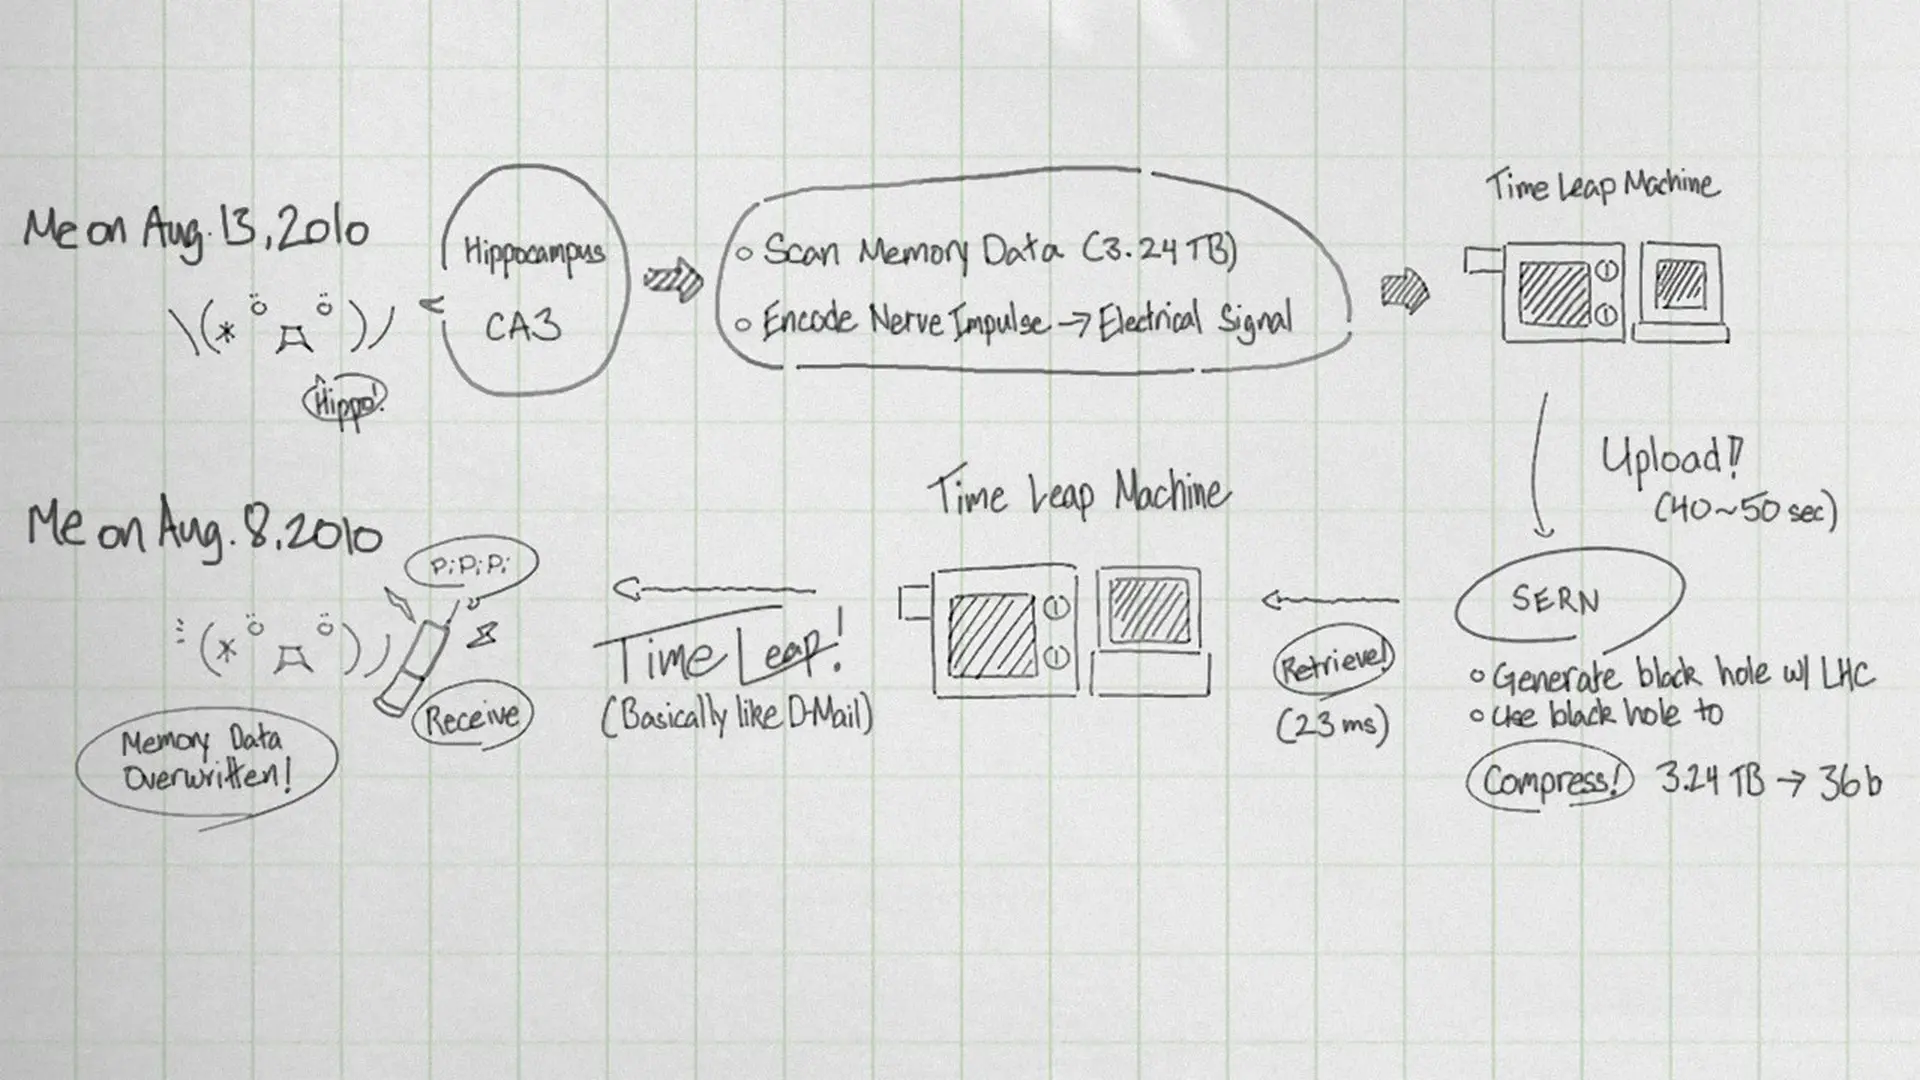 Me on Aug. 13, 2010
\(* ö 口 ö )/
Hippo!
Hippocampus
CA3
○ Scan Memory Data (3.24 TB)
○ Encode Nerve Impulse → Electrical Signal
Time Leap Machine
Upload!!
(40~50 sec)
SERN
○ Generate black hole w/ LHC
○ Use black hole to
Compress! 3.24 TB → 36b
Retrieve!
(23 ms)
Time Leap Machine
Time Leap!
(Basically like D-Mail)
Me on Aug. 8, 2010
PiPiPi
Receive
Memory Data
Overwritten!